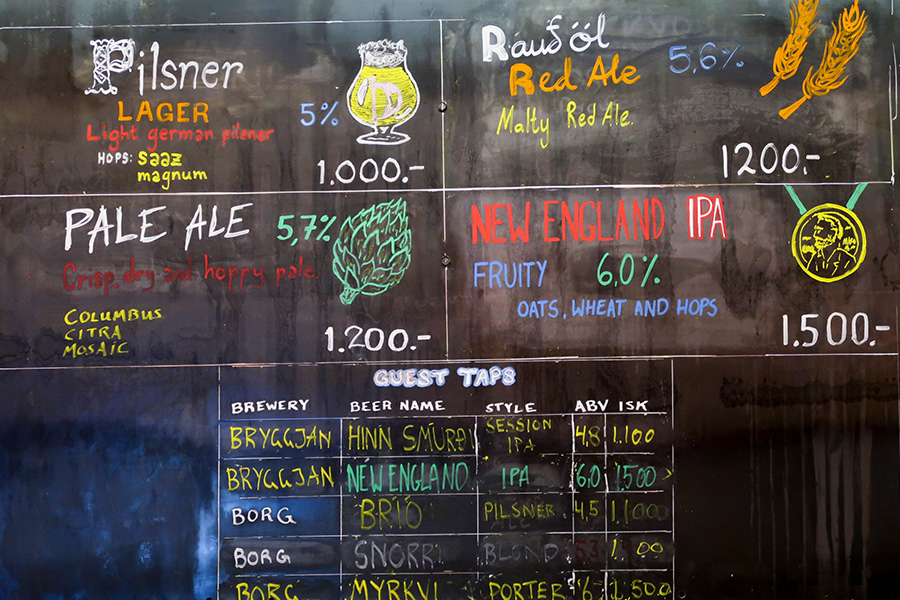 Pilsner
LAGER
5%
Light german pilsner
HOPS: Saaz
magnum
1.000.-
Rauð öl
Red Ale
5,6%
Malty Red Ale.
1200,-
PALE ALE
5,7%
Crisp, dry and hoppy pale.
COLUMBUS
CITRA
MOSAIC
1.200.-
NEW ENGLAND IPA
FRUITY 6,0%
OATS, WHEAT AND HOPS
1.500.-
GUEST TAPS
BREWERY BEER NAME STYLE ABV ISK
BRYGGJAN HINN SMURÐI SESSION IPA 4,8 1.100
BRYGGJAN NEW ENGLAND IPA 6,0 1500
BORG BRÍÓ PILSNER 4,5 1.100
BORG SNORRI BLOND 5.3
BORG MYRKVI PORTER 6